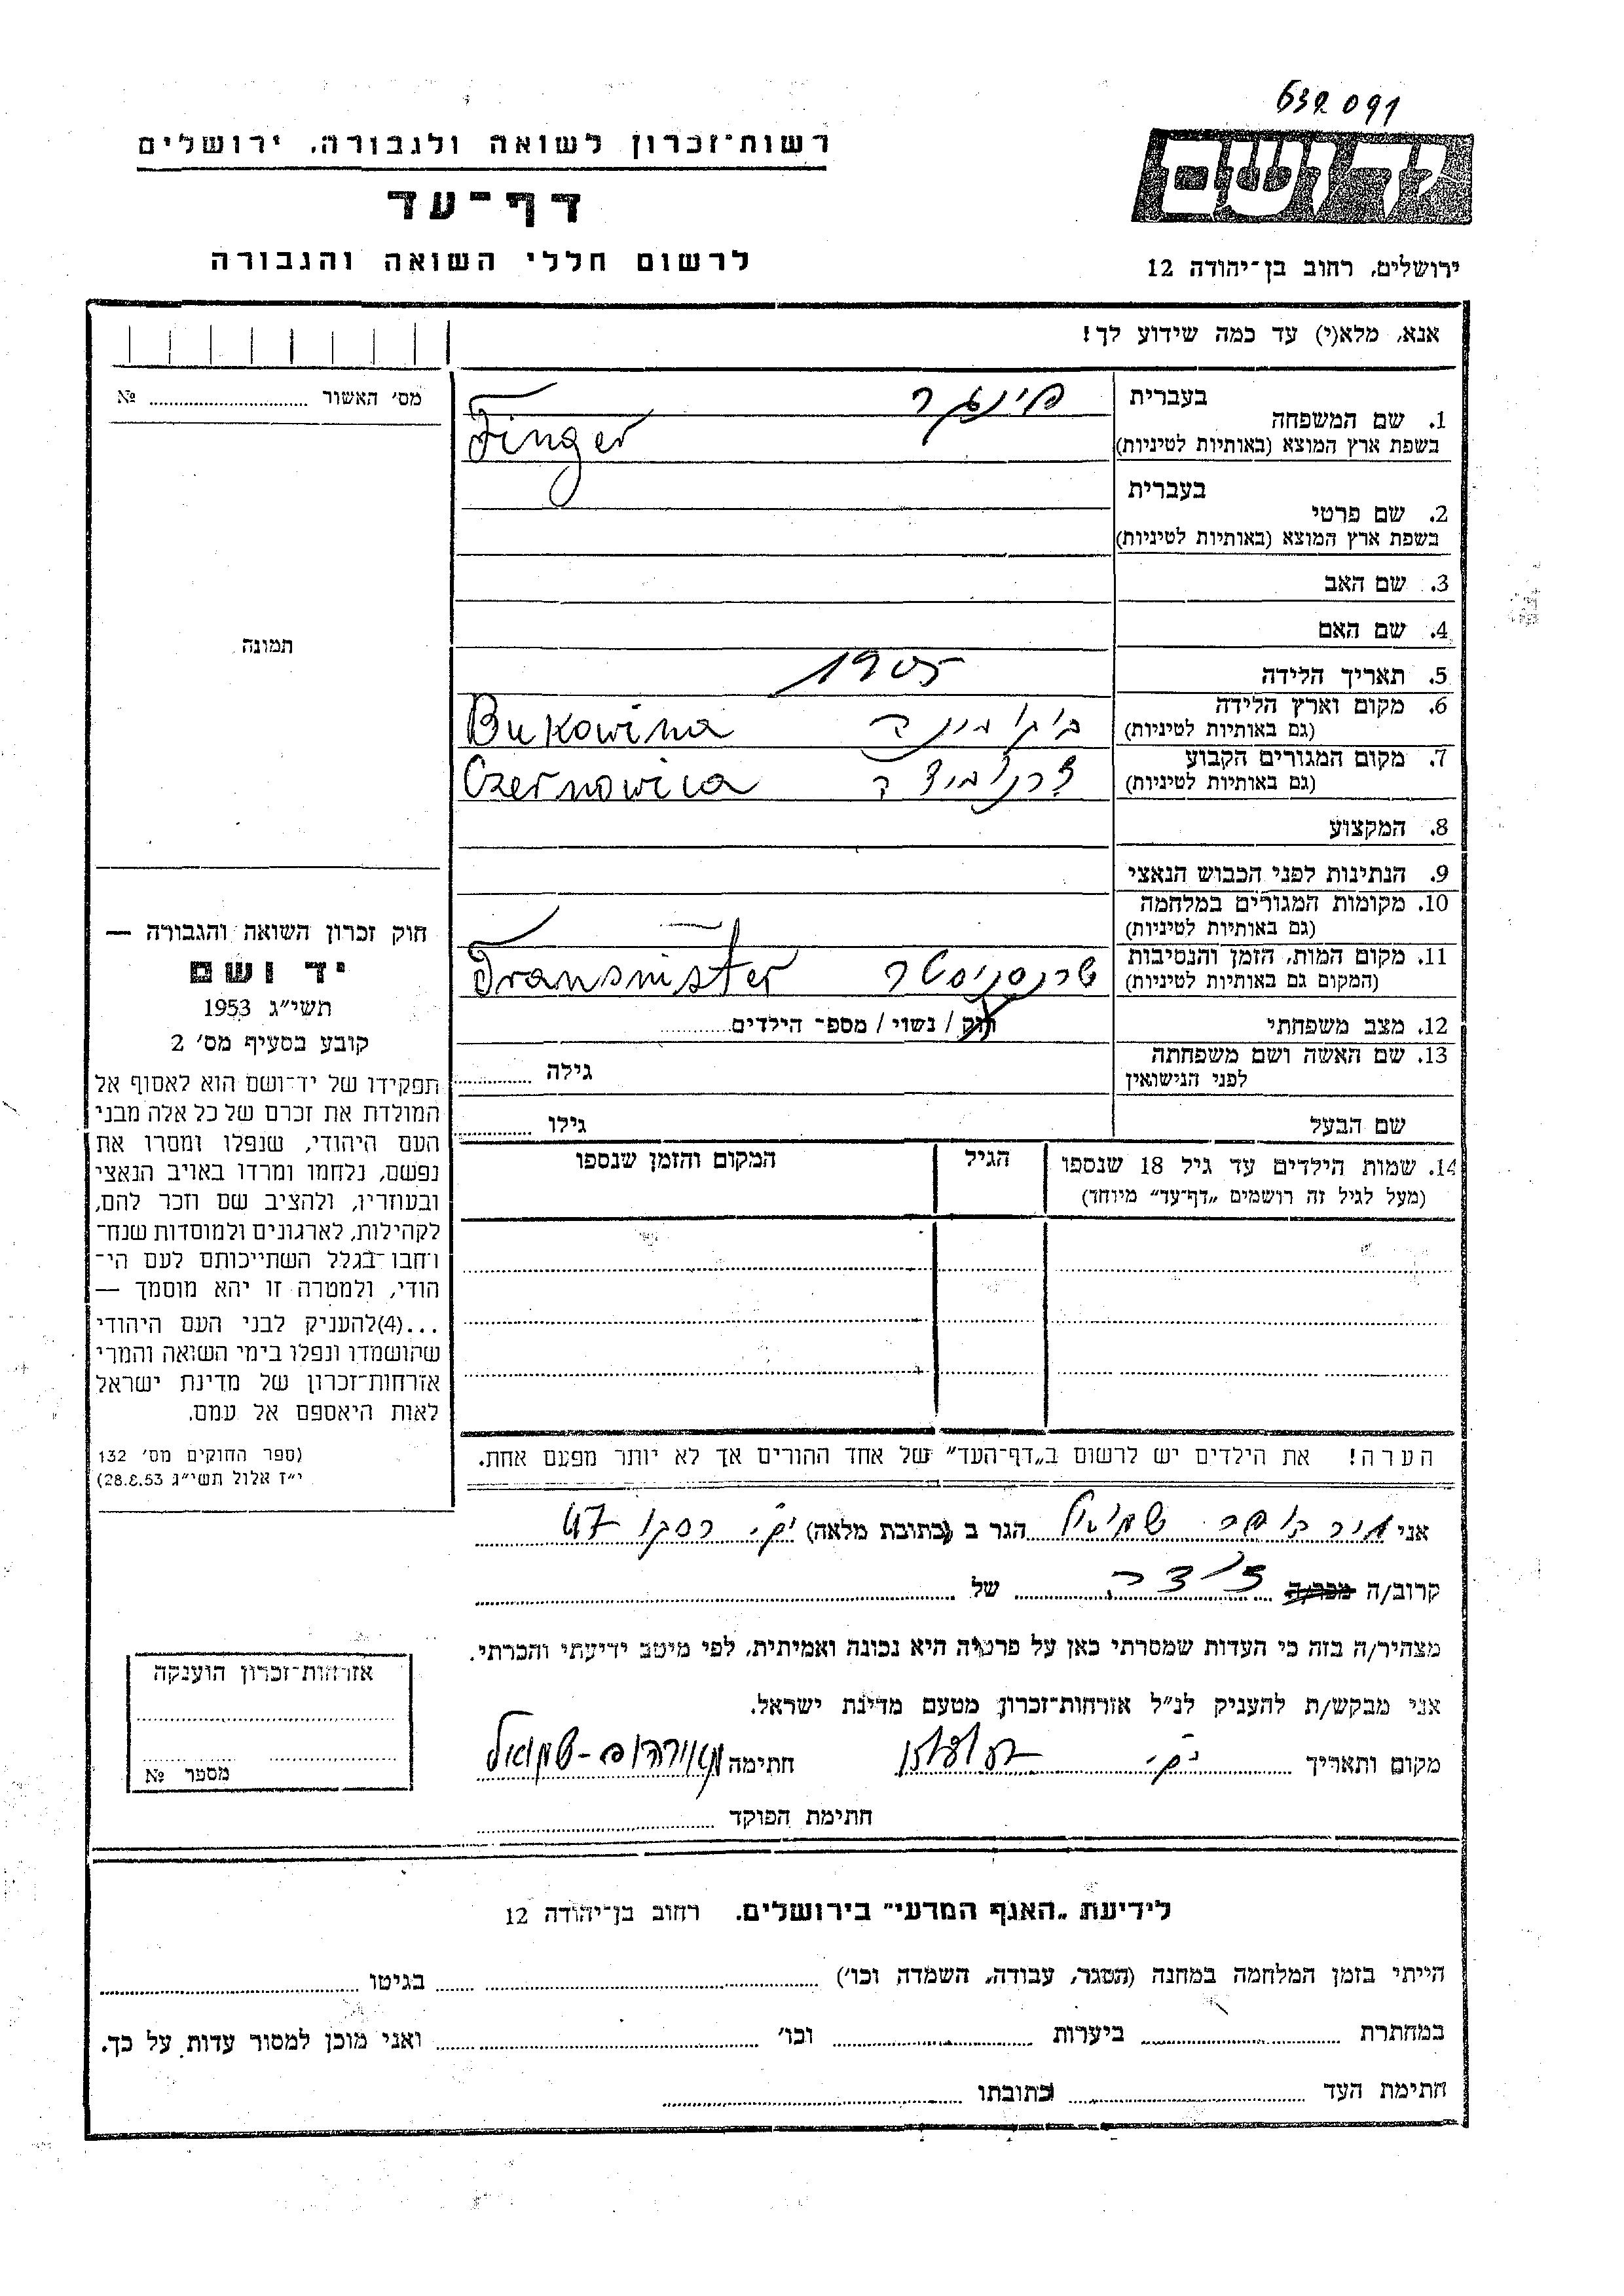 632091
ידושם
ירושלים, רחוב בן־יהודה 12
רשות־זכרון לשואה ולגבורה, ירושלים
דף־עד
לרשום חללי השואה והגבורה
אנא, מלא(י) עד כמה שידוע לך!
1. שם המשפחה בעברית פינגר
בשפת ארץ המוצא (באותיות לטיניות) Finger
2. שם פרטי בעברית
בשפת ארץ המוצא (באותיות לטיניות)
3. שם האב
4. שם האם
5. תאריך הלידה 1905
6. מקום וארץ הלידה
(גם באותיות לטיניות) Bukowina
7. מקום המגורים הקבוע
(גם באותיות לטיניות) Czernowica
8. המקצוע
9. הנתינות לפני הכבוש הנאצי
10. מקומות המגורים במלחמה
(גם באותיות לטיניות)
11. מקום המות, הזמן והנסיבות
(המקום גם באותיות לטיניות) טרנסניסטר Transnister
12. מצב משפחתי רוק / נשוי / מספר הילדים
13. שם האשה ושם משפחתה
לפני הנישואין גילה
שם הבעל גילו
14. שמות הילדים עד גיל 18 שנספו הגיל המקום והזמן שנספו
(מעל לגיל זה רושמים „דף־עד” מיוחד)
הערה! את הילדים יש לרשום ב„דף־העד” של אחד ההורים אך לא יותר מפעם אחת.
מס׳ האשור №
תמונה
חוק זכרון השואה והגבורה —
יד ושם
תשי״ג 1953
קובע בסעיף מס׳ 2
תפקידו של יד־ושם הוא לאסוף אל
המולדת את זכרם של כל אלה מבני
העם היהודי, שנפלו ומסרו את
נפשם, נלחמו ומרדו באויב הנאצי
ובעוזריו, ולהציב שם וזכר להם,
לקהילות, לארגונים ולמוסדות שנח־
רחבו בגלל השתייכותם לעם הי־
הודי, ולמטרה זו יהא מוסמך —
...(4)להעניק לבני העם היהודי
שהושמדו ונפלו בימי השואה והמרי
אזרחות־זכרון של מדינת ישראל
לאות היאספם אל עמם.
(ספר החוקים מס׳ 132
י״ז אלול תשי״ג 28.8.53)
אני שמואל הגר ב (כתובת מלאה) 47
קרוב/ה מכר/ה של
מצהיר/ה בזה כי העדות שמסרתי כאן על פרטיה היא נכונה ואמיתית, לפי מיטב ידיעתי והכרתי.
אני מבקש/ת להעניק לנ״ל אזרחות־זכרון מטעם מדינת ישראל.
מקום ותאריך חתימה
חתימת הפוקד
אזרחות־זכרון הוענקה
מספר №
לידיעת „האגף המדעי” בירושלים. רחוב בן־יהודה 12
הייתי בזמן המלחמה במחנה (הסגר, עבודה, השמדה וכו׳) בגיטו
במחתרת ביערות וכו׳ ואני מוכן למסור עדות על כך.
חתימת העד כתובתו